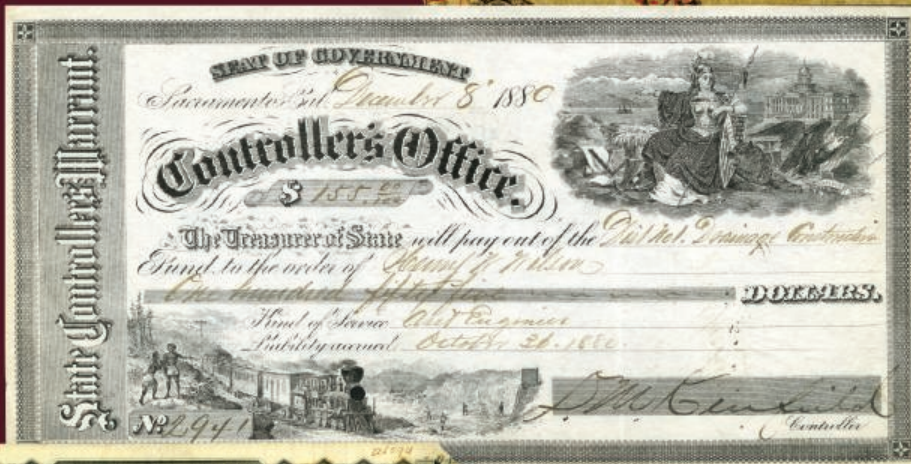 State Controller's Warrant.
SEAT OF GOVERNMENT
Sacramento Cal. December 8 1880
Controller's Office.
$ 155 00/100
The Treasurer of State will pay out of the Dist No 1. Drainage Construction
Fund, to the order of Henry Wilson
One hundred fifty five DOLLARS.
Kind of Service Asst Engineer
Liability accrued October 1880.
No. 2941
Controller